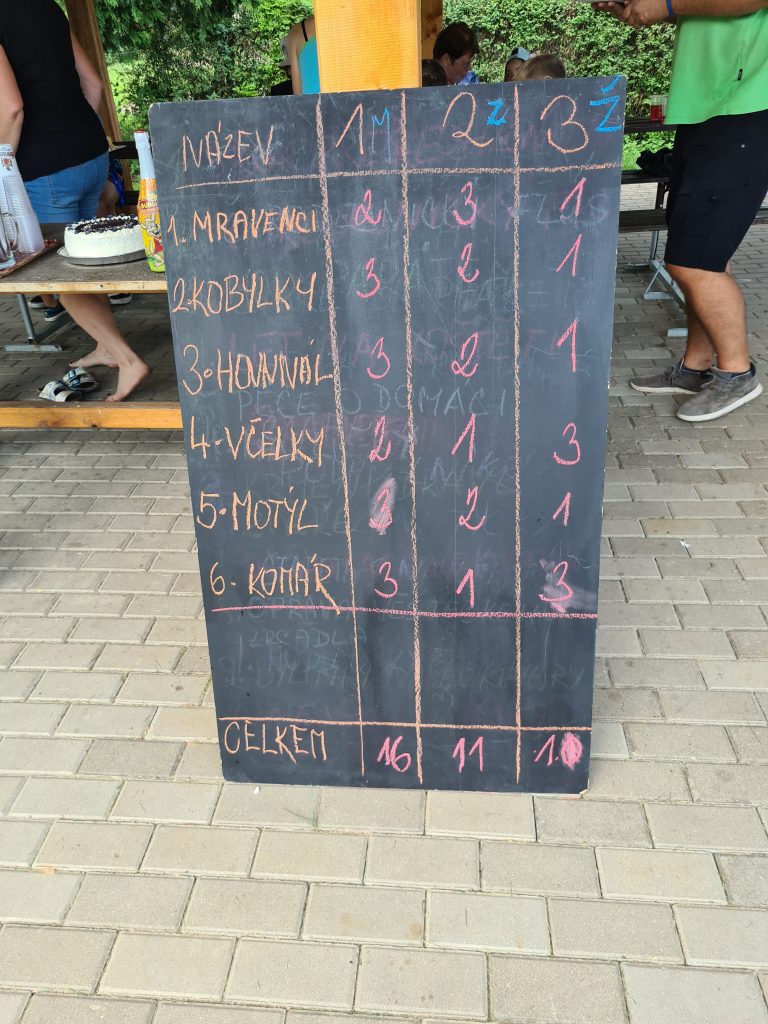 NÁZEV 1 M 2 Z 3 Ž
1. MRAVENCI 2 3 1
2. KOBYLKY 3 2 1
3. HOVNIVÁL 3 2 1
PEČE O DOMÁCÍ
4. VČELKY 2 1 3
5. MOTÝL 3 2 1
6. KOMÁR 3 1 3
ZRCADLA
CELKEM 16 11 10